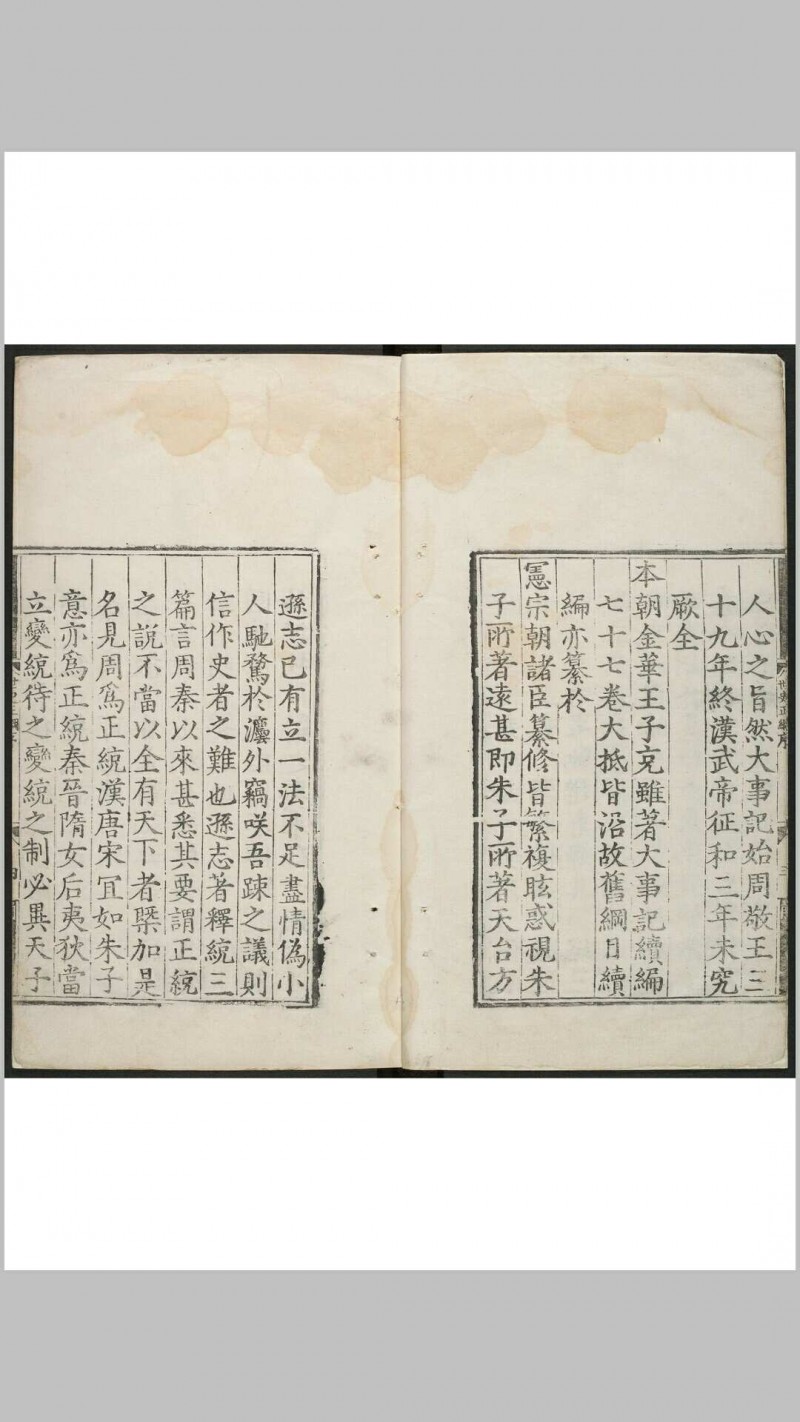 人心之旨然大事記始周敬王三
十九年終漢武帝征和三年未究
厥全
本朝金華王子充雖著大事記續編
七十七卷大抵皆沿故舊綱目續
編亦纂於
憲宗朝諸臣纂修皆繁複眩惑視朱
子所著遠甚即朱子所著天台方
遜志已有立一法不足盡情偽小
人馳騖於灋外竊咲吾踈之議則
信作史者之難也遜志著釋統三
篇言周秦以來甚悉其要謂正統
之說不當以全有天下者槩加是
名見周為正統漢唐宋冝如朱子
意亦為正統秦晉隋女后夷狄當
立變統待之變統之制必異天子